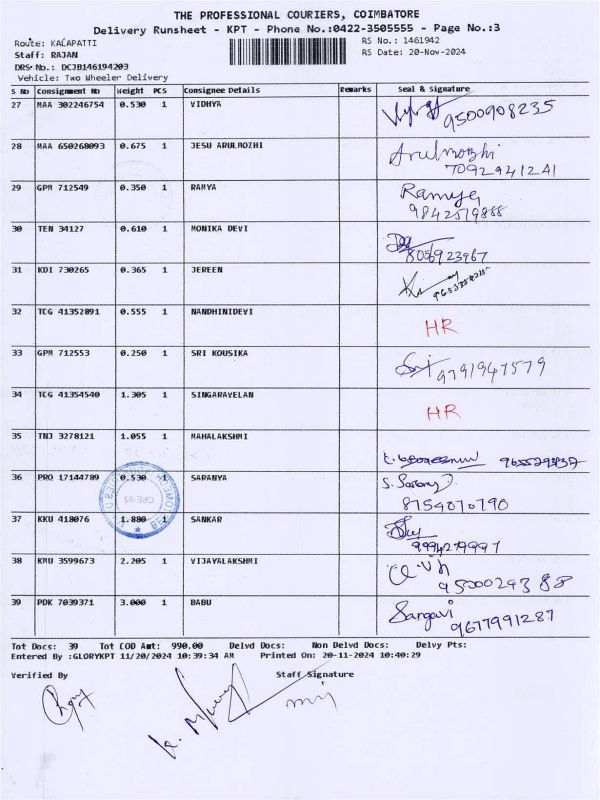 THE PROFESSIONAL COURIERS, COIMBATORE
Delivery Runsheet - KPT - Phone No.:0422-3505555 - Page No.:3
Route: KALAPATTI RS No.: 1461942
Staff: RAJAN RS Date: 20-Nov-2024
DRS No.: DCJB146194203
Vehicle: Two Wheeler Delivery
S No Consignment No Weight PCS Consignee Details Remarks Seal & Signature
27 MAA 302246754 0.530 1 VIDHYA
9500908235
28 MAA 650268093 0.675 1 JESU ARULMOZHI Arulmozhi
7092941241
29 GPM 712549 0.350 1 RAMYA Ramya
9842519888
30 TEN 34127 0.610 1 MONIKA DEVI
8056923967
31 KDI 730265 0.365 1 JEREEN
32 TCG 41352891 0.555 1 NANDHINIDEVI HR
33 GPM 712553 0.250 1 SRI KOUSIKA 9791947579
34 TCG 41354540 1.305 1 SINGARAVELAN HR
35 TNJ 3278121 1.055 1 MAHALAKSHMI
36 PRO 17144789 0.530 1 SARANYA S. Sarany
8754070790
37 KKU 418076 1.880 1 SANKAR
9994279997
38 KMU 3599673 2.205 1 VIJAYALAKSHMI
9500029388
39 PDK 7039371 3.000 1 BABU Sangavi
9677991287
Tot Docs: 39 Tot COD Amt: 990.00 Delvd Docs: Non Delvd Docs: Delvy Pts:
Entered By :GLORYKPT 11/20/2024 10:39:34 AM Printed On: 20-11-2024 10:40:29
Verified By Staff Signature